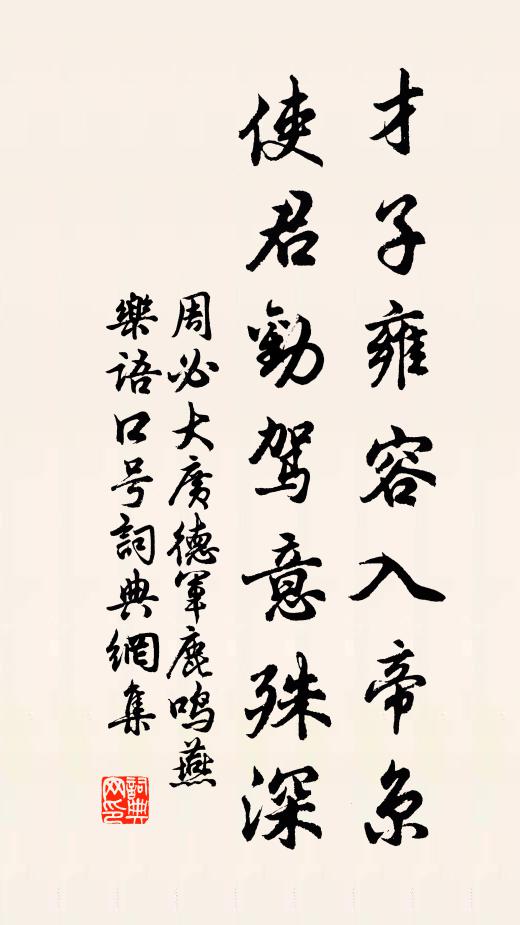 才子雍容入帝京
使君勸駕意殊深
周必大廣德軍鹿鸣燕
樂語口号詞典網集
詞典网印